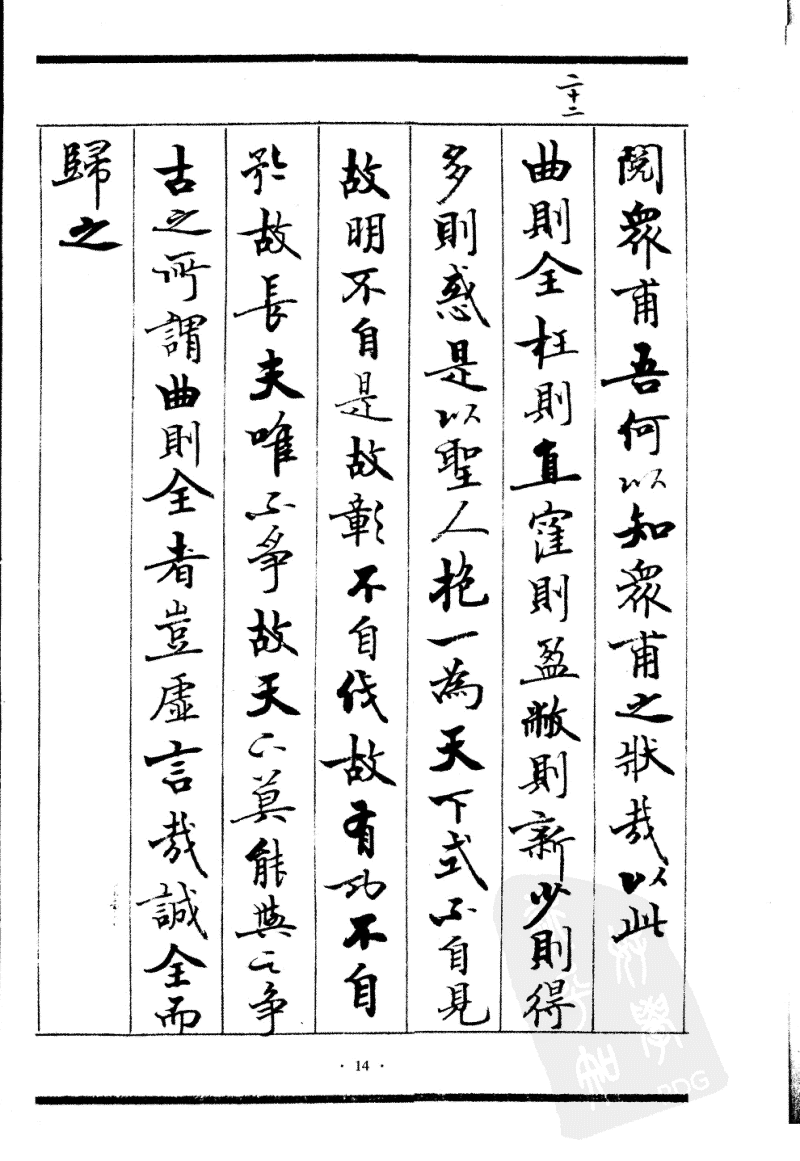 二十二
閱衆甫吾何以知衆甫之狀哉以此
曲則全枉則直窪則盈敝則新少則得
多則惑是以聖人抱一為天下式不自見
故明不自是故彰不自伐故有功不自
矜故長夫唯不爭故天下莫能與之爭
古之所謂曲則全者豈虛言哉誠全而
歸之
· 14 ·